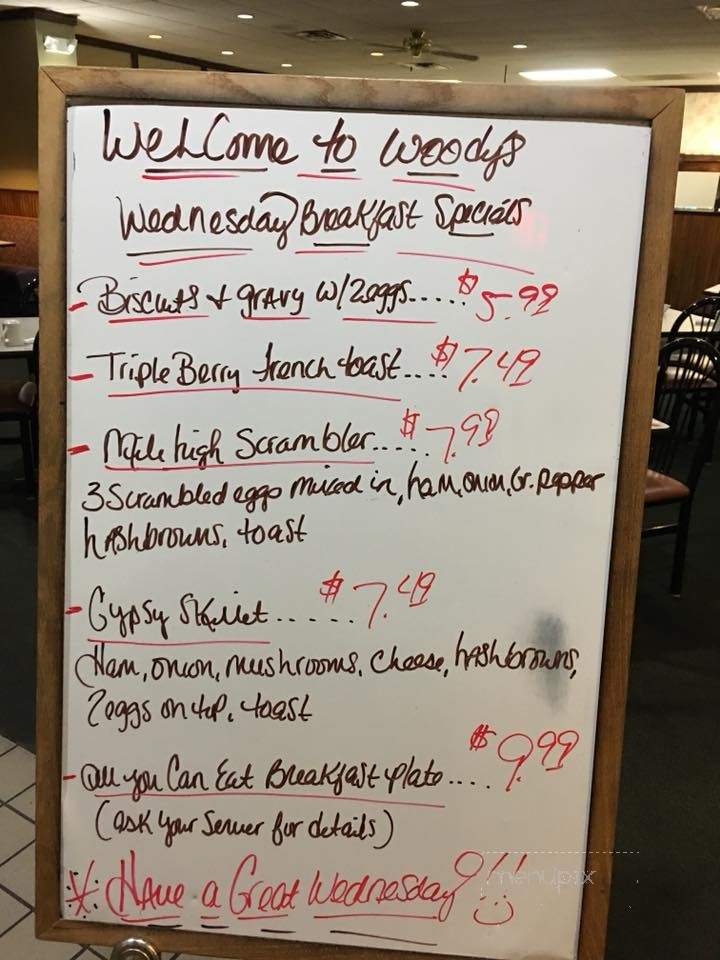 Welcome to Woodys
Wednesday Breakfast Specials
- Biscuits + gravy w/2eggs..... $5.99
- Triple Berry french toast.... $7.49
- Mile high Scrambler..... $7.99
3 Scrambled eggs mixed in, ham, onion, Gr. pepper
hashbrowns, toast
- Gypsy Skillet...... $7.49
Ham, onion, mushrooms, Cheese, hashbrowns,
2 eggs on top, toast
- All you Can Eat Breakfast plate.... $9.99
(ask your Server for details)
* Have a Great Wednesday!!
menupix